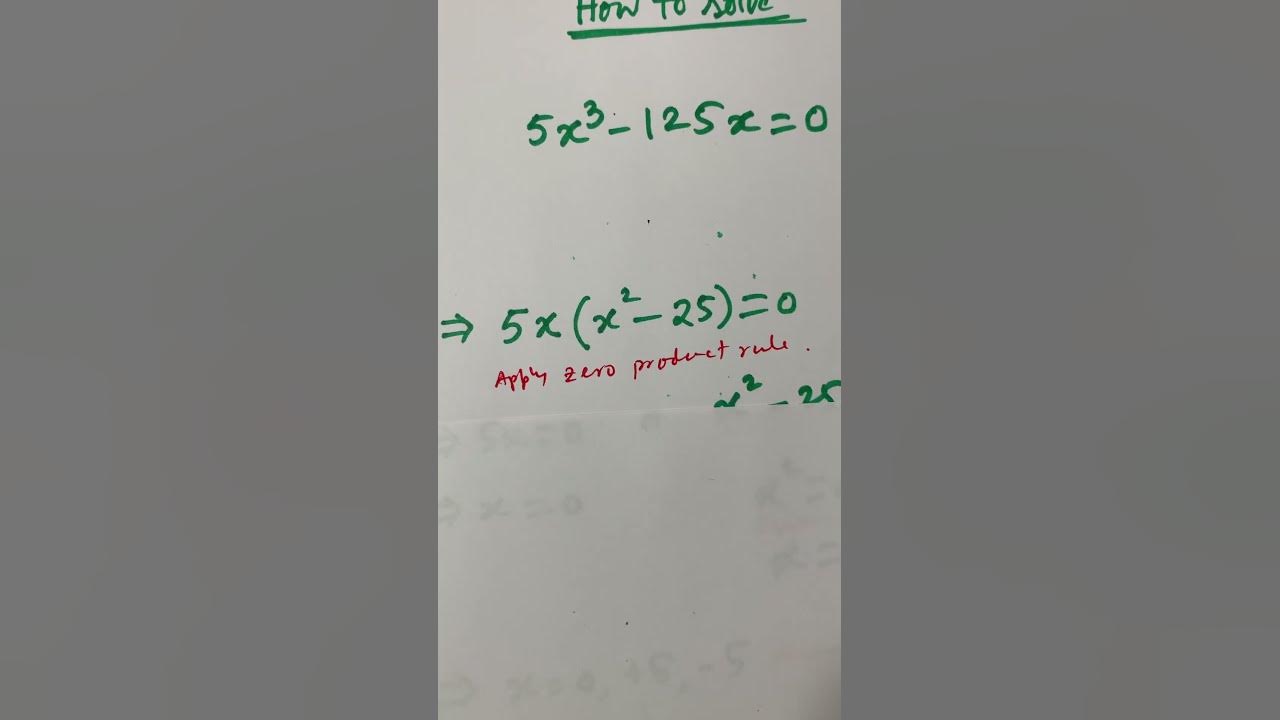 How To Solve
5x³ - 125x = 0
⇒ 5x(x² - 25) = 0
Apply zero product rule.
x² - 25
⇒ 5x = 0
⇒ x = 0 x² =
x =
⇒ x = 0, +5, -5